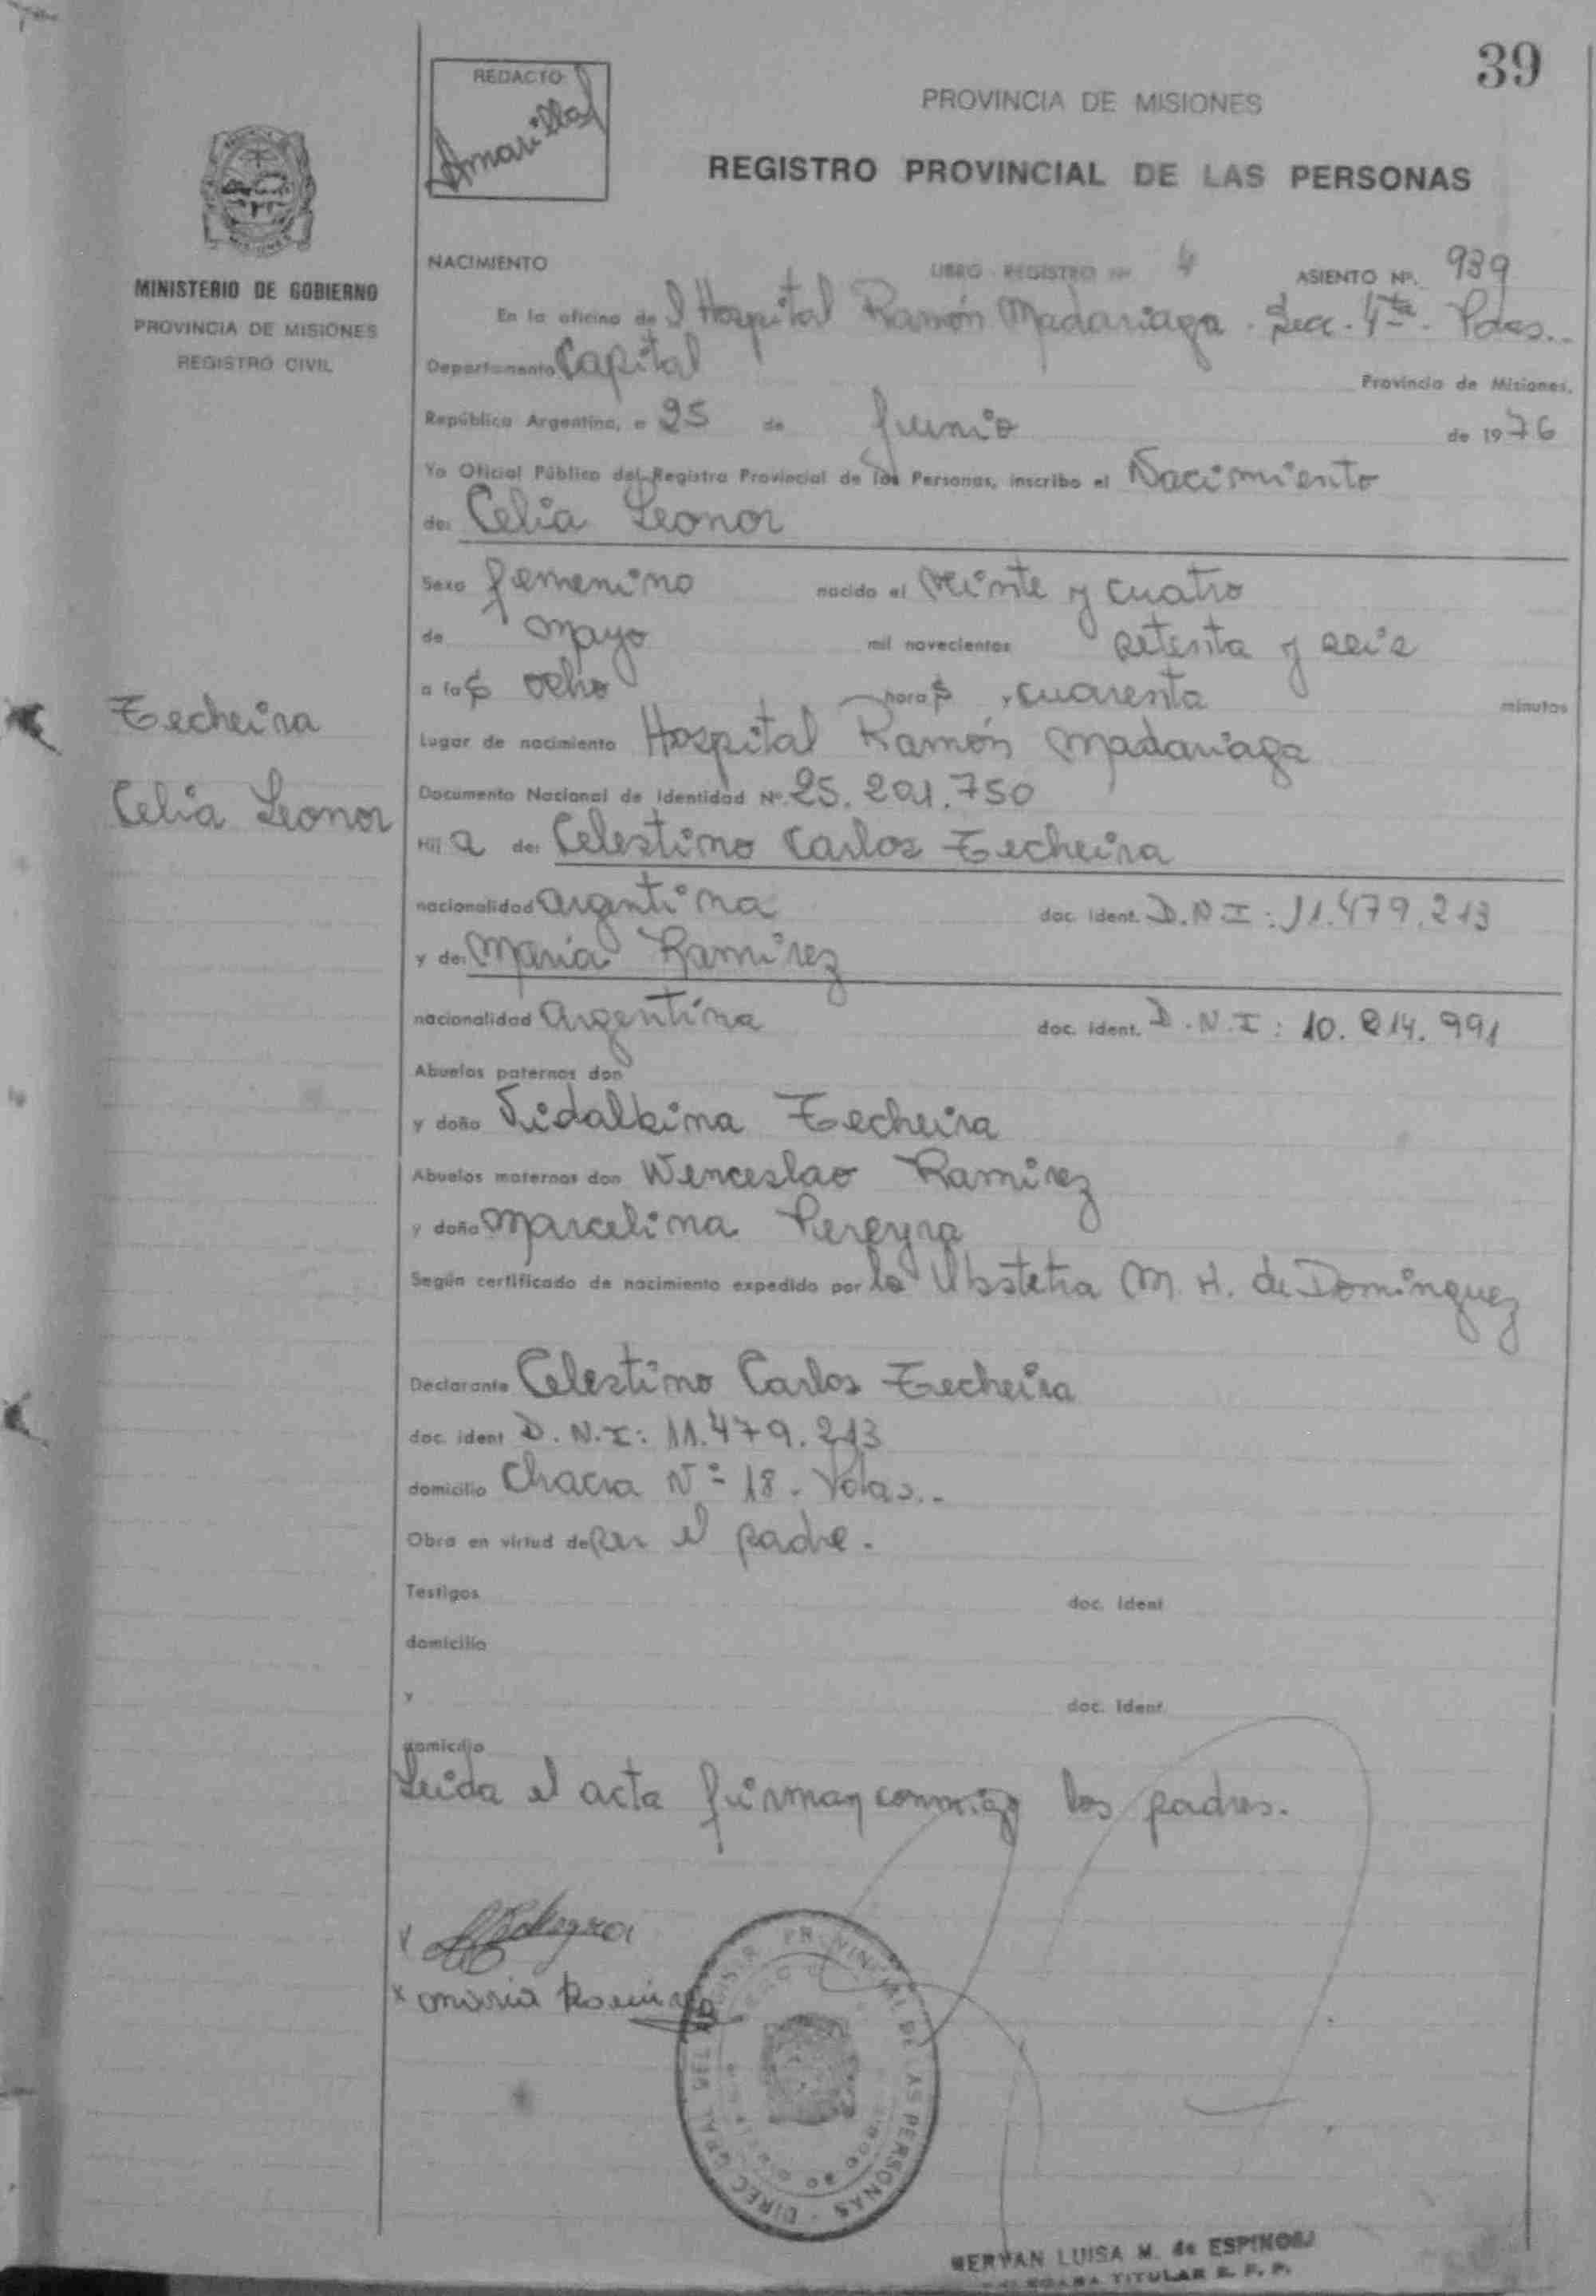 39
REDACTO
Amarilla
PROVINCIA DE MISIONES
REGISTRO PROVINCIAL DE LAS PERSONAS
MINISTERIO DE GOBIERNO
PROVINCIA DE MISIONES
REGISTRO CIVIL
NACIMIENTO LIBRO REGISTRO Nº 4 ASIENTO Nº. 939
En la oficina del Hospital Ramón Madariaga. Secc. 4ta. Pdas..
Departamento Capital Provincia de Misiones,
República Argentina, a 25 de Junio de 1976
Yo Oficial Público del Registro Provincial de las Personas, inscribo el Nacimiento
de: Celia Leonor
Sexo femenino nacido el veinte y cuatro
de mayo mil novecientos setenta y seis
a las ocho horas, cuarenta minutos
Lugar de nacimiento Hospital Ramón Madariaga
Documento Nacional de Identidad Nº. 25.201.750
Techeira
Celia Leonor
Hija de: Celestino Carlos Techeira
nacionalidad argentina doc. ident. D.N.I: 11.479.213
y de: Maria Ramirez
nacionalidad argentina doc. ident. D.N.I: 10.214.991
Abuelos paternos don
y doña Vidalbina Techeira
Abuelos maternos don Wenceslao Ramirez
y doña Marcelina Pereyra
Según certificado de nacimiento expedido por la Obstetra M. H. de Dominguez
Declarante Celestino Carlos Techeira
doc. ident D.N.I: 11.479.213
domicilio Chacra Nº 18. Pdas..
Obra en virtud de ser el padre.
Testigos doc. ident
domicilio
y doc. ident.
domicilio
Leida el acta firman conmigo los padres.
x
x maria Ramirez
DIREC. GRAL. DEL REGISTR. PROVINCIAL DE LAS PERSONAS
LUISA M. de ESPINOSA
TITULAR R. P. P.